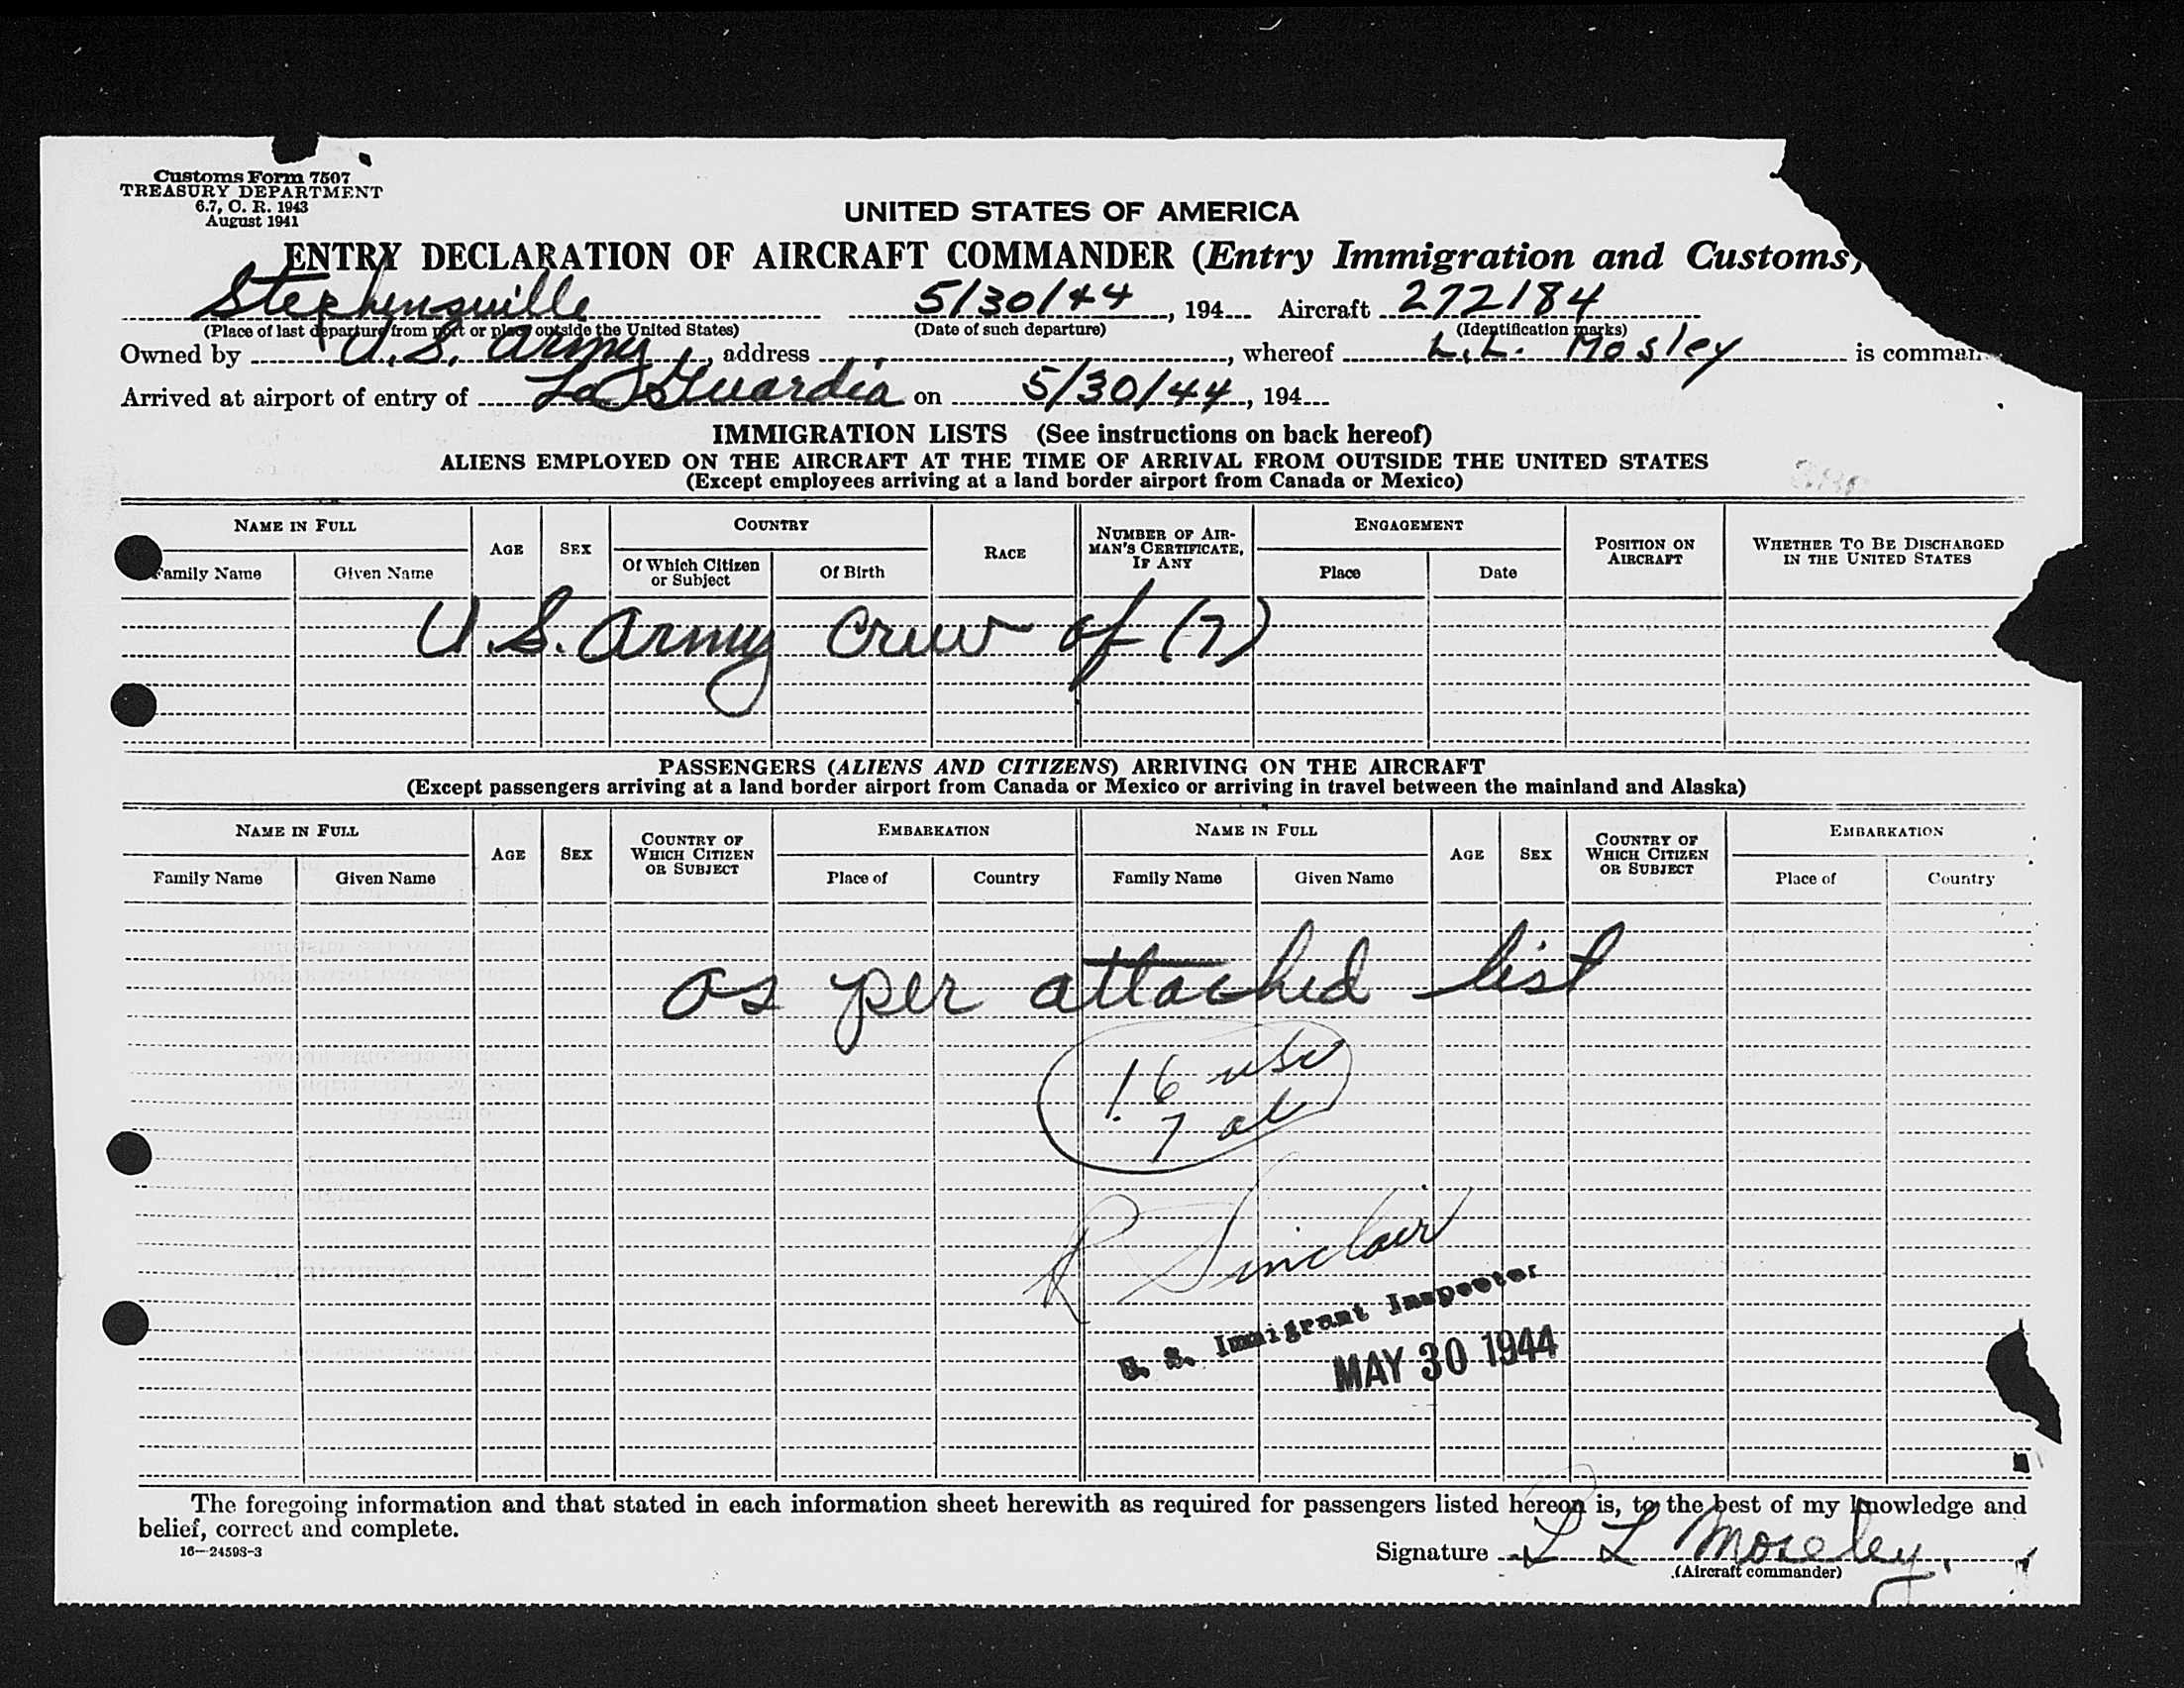 Customs Form 7507
TREASURY DEPARTMENT
6.7, C. R. 1943
August 1941
UNITED STATES OF AMERICA
ENTRY DECLARATION OF AIRCRAFT COMMANDER (Entry Immigration and Customs)
Stephensville 5/30/44, 194 Aircraft 272184
(Place of last departure from port or place outside the United States) (Date of such departure) (Identification marks)
Owned by U.S. Army, address , whereof L.L. Mosley is comman
Arrived at airport of entry of La Guardia on 5/30/44, 194
IMMIGRATION LISTS (See instructions on back hereof)
ALIENS EMPLOYED ON THE AIRCRAFT AT THE TIME OF ARRIVAL FROM OUTSIDE THE UNITED STATES
(Except employees arriving at a land border airport from Canada or Mexico)
NAME IN FULL AGE SEX COUNTRY RACE NUMBER OF AIRMAN'S CERTIFICATE, IF ANY ENGAGEMENT POSITION ON AIRCRAFT WHETHER TO BE DISCHARGED IN THE UNITED STATES
Family Name Given Name Of Which Citizen or Subject Of Birth Place Date
U.S. Army Crew of (7)
PASSENGERS (ALIENS AND CITIZENS) ARRIVING ON THE AIRCRAFT
(Except passengers arriving at a land border airport from Canada or Mexico or arriving in travel between the mainland and Alaska)
NAME IN FULL AGE SEX COUNTRY OF WHICH CITIZEN OR SUBJECT EMBARKATION NAME IN FULL AGE SEX COUNTRY OF WHICH CITIZEN OR SUBJECT EMBARKATION
Family Name Given Name Place of Country Family Name Given Name Place of Country
as per attached list
16 usc
7 al
R Sinclair
U. S. Immigrant Inspector
MAY 30 1944
The foregoing information and that stated in each information sheet herewith as required for passengers listed hereon is, to the best of my knowledge and
belief, correct and complete.
16—24598-3
Signature L L Moseley
(Aircraft commander)